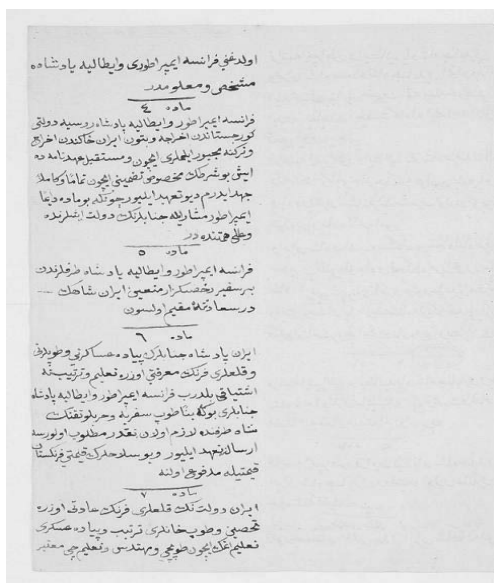 اولدغی فرانسه ایمپراطوری وایطالیه پادشاه
مشخص ومعلومدر
ماده ٤
فرانسه ایمپراطور وایطالیه پادشاه روسیه دولتی
کورجستاندن اخراجه وبتون ایران خاکندن اخراج
وترکنه مجبور ایلملری ایچون ومستقبل عهدنامه ده
ایتی بوشرطک مخصوص ایچون تماما وکاملا
جهد ایدرم دیو تعهد ایلیور جونکه بوماده دایما
ایمپراطور مشارلیله جنابلرنک دولت ایشلرنده
در
ماده ٥
فرانسه ایمپراطور وایطالیه پادشاه طرفلرندن
بر سفیر ایران شاهک
درسعادتنده مقیم اولسون
ماده ٦
ایران پادشاه جنابلرک پیاده عساکرنی وطوپلرنی
وقلعلری فرنک معرفتی اوزره تعلیم وترتیبنه
اشتیاقی بلدرب فرانسه ایمپراطور وایطالیه پادشاه
جنابلری بوکه بناطوب سفریه وحربلو تفنک
شاه طرفنده لازم اولان نقدر مطلوب اولورسه
ارسال تعهد ایلیور وبوسلاحلرک قیمتی فرنکستان
قیمتیله مدفوع اولنه
ماده ٧
ایران دولتنک قلعلری فرنک عادتی اوزره
تحصینی وطوب خانلری ترتیب وپیاده عسکری
تعلیم اتمک ایچون طوپجی ومهندس وتعلیم جی معتبر